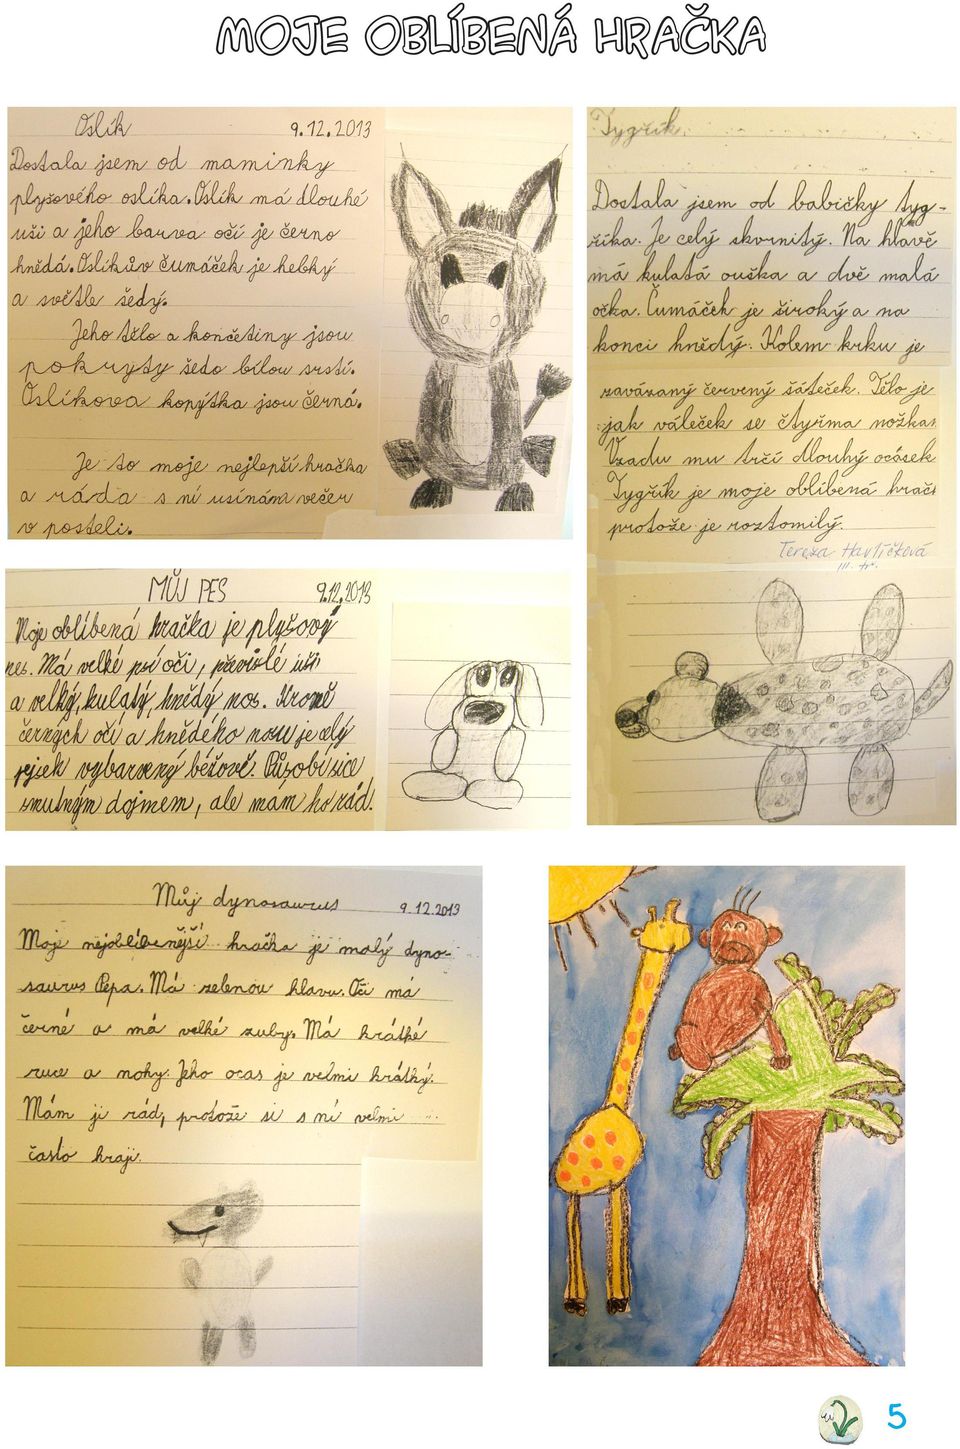 MOJE OBLÍBENÁ HRAČKA
Oslík 9.12.2013
Dostala jsem od maminky
plyšového oslíka. Oslík má dlouhé
uši a jeho barva očí je černo
hnědá. Oslíkův čumáček je hebký
a světle šedý.
Jeho tělo a končetiny jsou
pokryty šedo bílou srstí.
Oslíkova kopýtka jsou černá.
Je to moje nejlepší hračka
a ráda s ní usínám večer
v posteli.
Tygřík
Dostala jsem od babičky tyg-
říka. Je celý skvrnitý. Na hlavě
má kulatá ouška a dvě malá
očka. Čumáček je široký a na
konci hnědý. Kolem krku je
zavázaný červený šáteček. Tělo je
jak váleček se čtyřma nožka
Vzadu mu trčí dlouhý ocásek
Tygřík je moje oblíbená hrač
protože je roztomilý.
Tereza Havlíčková
III. tř.
MŮJ PES 9.12.2013
Moje oblíbená hračka je plyšový
pes. Má velké psí oči, převislé uši
a velký, kulatý, hnědý nos. Kromě
černých očí a hnědého nosu je celý
pejsek vybarvený béžově. Působí sice
smutným dojmem, ale mám ho rád.
Můj dynosaurus 9.12.2013
Moje nejoblíbenější hračka je malý dyno-
saurus Pepa. Má zelenou hlavu. Oči má
černé a má velké zuby. Má krátké
ruce a nohy. Jeho ocas je velmi krátký.
Mám ji rád, protože si s ní velmi
často hraji.
5